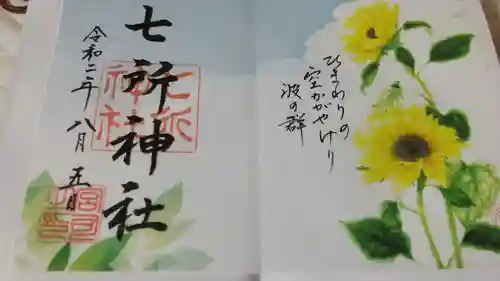 七所神社
令和二年 八月 五日
七所
神社
ひまわりの
空かがやけり
波の群